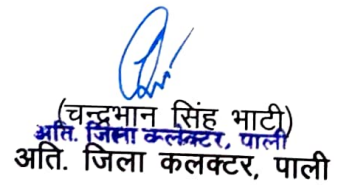 (चन्द्रभान सिंह भाटी)
अति. जिला कलेक्टर, पाली
अति. जिला कलक्टर, पाली